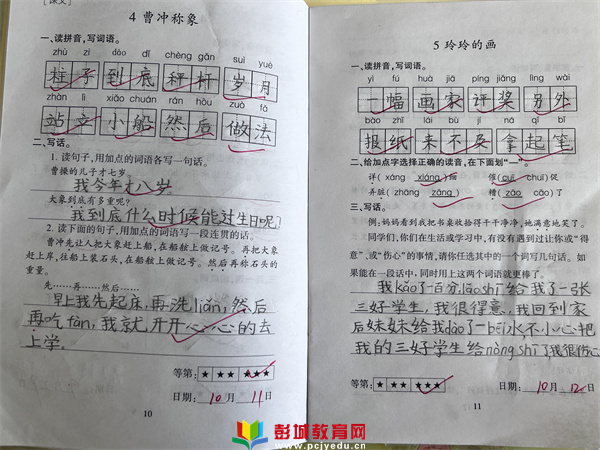 [课文]
4 曹冲称象
一、读拼音,写词语。
zhù zi dào dǐ chèng gǎn suì yuè
柱子 到底 秤杆 岁月
zhàn lì xiǎo chuán rán hòu zuò fǎ
站立 小船 然后 做法
二、写话。
1. 读句子,用加点的词语各写一句话。
曹操的儿子才七岁。
我今年才八岁。
大象到底有多重呢?
我到底什么时候能过生日呢?
2. 读下面的句子,用加点的词语写一段连贯的话。
曹冲先让人把大象赶上船,在船舷上做记号。再把大象
赶上岸,往船上装石头,在船舷上做记号。然后再称石头的
重量。
先……再……然后……
早上我先起床,再洗liǎn,然后
再吃fàn,我就开开心心的去
上学。
等第: ★ ★ ★ ★★★
日期: 10 月 11 日
10
5 玲玲的画
一、读拼音,写词语。
yì fú huà jiā píng jiǎng lìng wài
一幅 画家 评奖 另外
bào zhǐ lái bù jí ná qǐ bǐ
报纸 来不及 拿起笔
二、给加点字选择正确的读音,在下面划“—”。
详(xáng xiáng)细 催(cuī chuī)促
弄脏(zhāng zāng) 糟(záo zāo)了
三、写话。
例:妈妈看到我把书桌收拾得干干净净,她满意地笑了。
同学们,你们在生活或学习中,有没有遇到过让你或“得
意”、或“伤心”的事情,请你任选其中的一个词写几句话。如
果能在一段话中,同时用上这两个词语就更棒了。
我kǎo了一百分lǎoshī给我了一张
三好学生,我很得意,我回到家
后妹妹给我dào了一bēi水,不小心把
我的三好学生给nòng shī了我很伤心
等第: ★ ★★ ★★★
日期: 10 月 12 日
11
彭城教育网
www.pcjyedu.cn